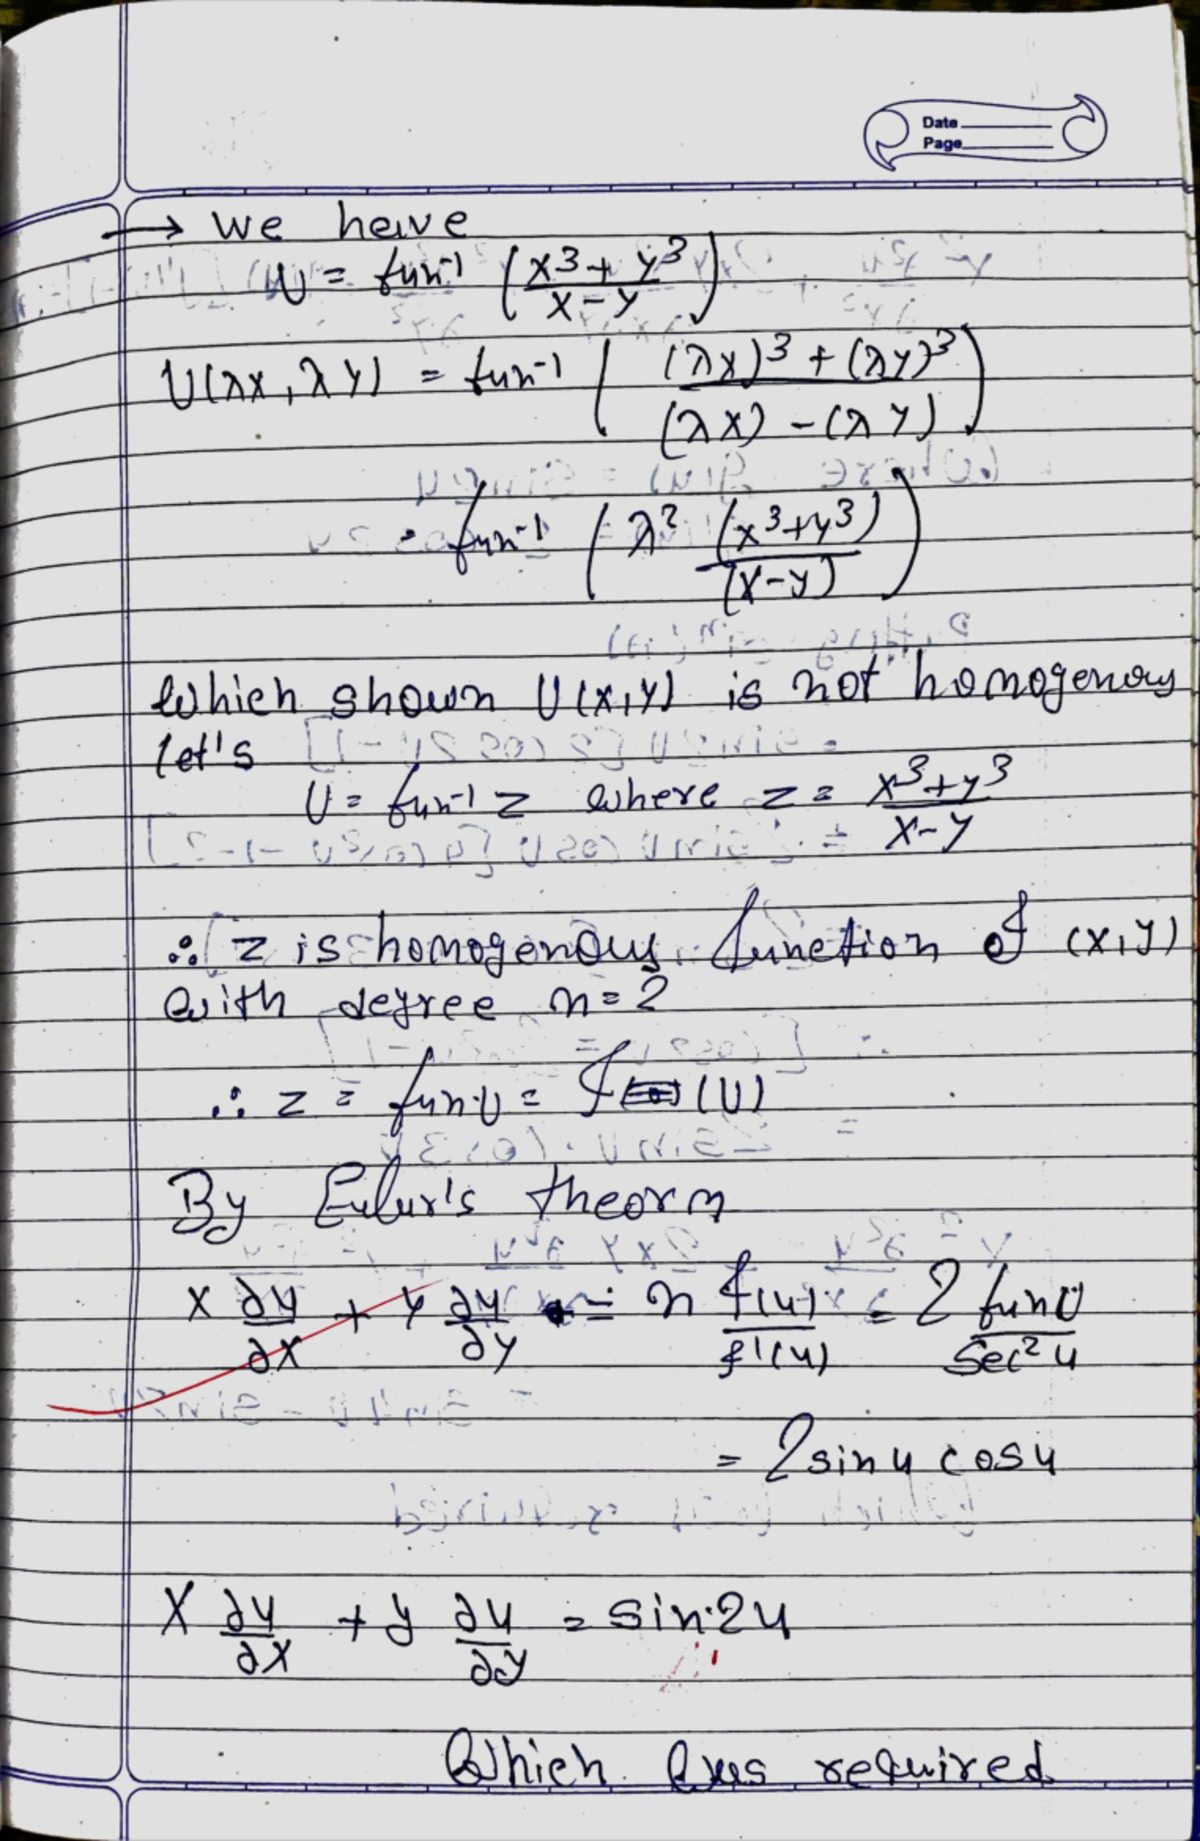 Date
Page
→ we have
U = tan⁻¹ (x³+y³ / x-y)
U(λx, λy) = tan⁻¹ ((λx)³ + (λy)³ / (λx) - (λy))
= tan⁻¹ (λ² (x³+y³) / (x-y))
Which shown U(x,y) is not homogenous
let's
U = tan⁻¹ z where z = x³+y³ / x-y
∴ z is homogenous function of (x,y)
with degree n=2
∴ z = tan U = f (U)
By Eulur's theorm
x ∂u/∂x + y ∂u/∂y = n f(u)/f'(u) = 2 tan U / sec² u
= 2 sin u cos u
x ∂u/∂x + y ∂u/∂y = sin 2u
Which was required